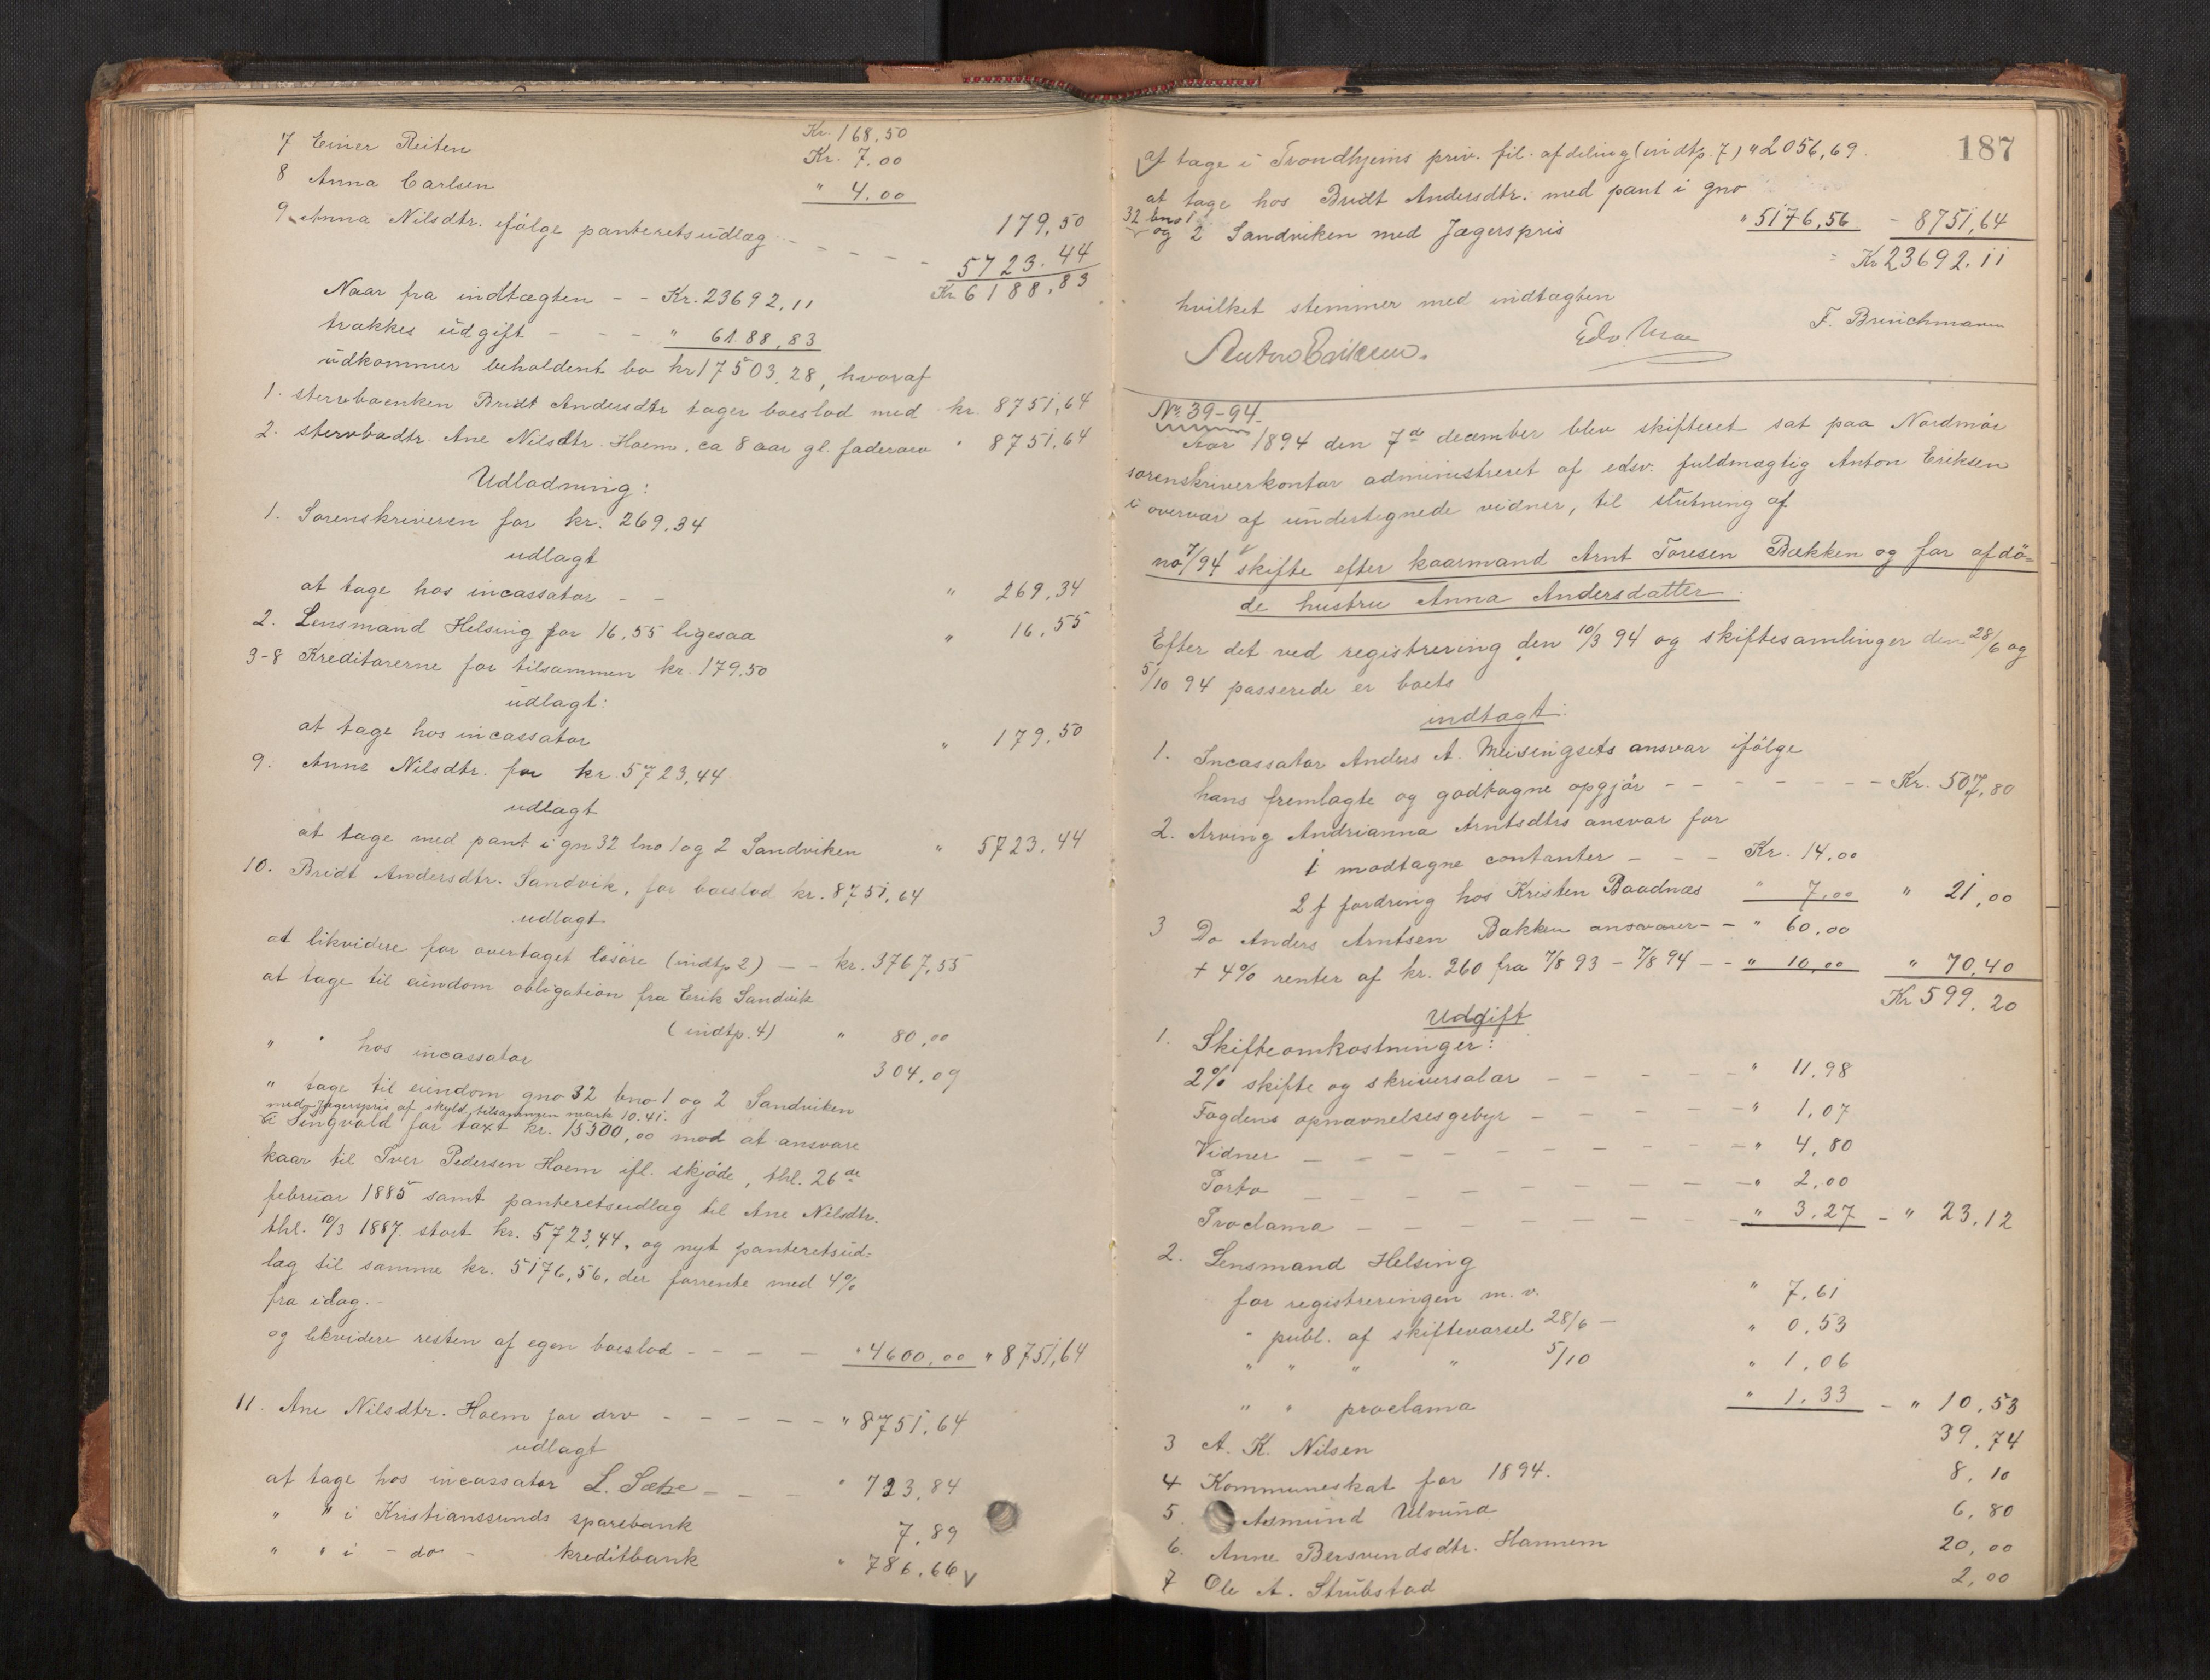 Kr. 168,50
7 Einer Reiten Kr. 7.00
8 Anna Carlsen " 4.00
179,50
9 Anna Nilsdtr. ifølge panteretsudlæg - - - - - 5723.44
Kr. 6188,83
Naar fra indtægten - - Kr. 23692,11
trækkes udgift - - - " 6188,83
udkommer beholdent bo kr 17503,28, hvoraf
1. stervboenken Bridt Andersdtr tager boeslod med kr. 8751,64
2. stervbodtr. Ane Nilsdtr. Hoem, ca 8 aar gl. faderarv " 8751,64
Udlodning:
1. Sorenskriveren for kr. 269.34
udlagt
at tage hos incassator - - " 269,34
2. Lensmand Helsing for 16,55 ligesaa " 16,55
3-8 Kreditorerne for tilsammen kr. 179.50
udlagt:
at tage hos incassator " 179.50
9. Anne Nilsdtr. for kr. 5723,44
udlagt
at tage med pant i gn 32 bno 1 og 2 Sandviken " 5723.44
10. Bridt Andersdtr. Sandvik, for boeslod kr. 8751,64
udlagt
at likvidere for overtaget løsøre (indtp 2) - - kr. 3767,55
at tage til eiendom obligation fra Erik Sandvik
(indtp. 4) " 80,00
" " hos incassator 304,09
" tage til eiendom gno 32 bno 1 og 2 Sandviken
med Jægerspris af skyld tilsammen mark 10.41.
i Tingvold for taxt kr. 15500,00 mod at ansvare
kaar til Iver Pedersen Hoem ifl. skjøde, thl. 26de
februar 1885 samt panteretsudlæg til Ane Nilsdtr.
thl. 10/3 1887. stort kr. 5723,44, og nyt panteretsud-
læg til samme kr. 5176,56, der forrente med 4%
fra idag.-
og likvidere resten af egen boeslod - - - - " 4600,00 " 8751,64
11. Ane Nilsdtr. Hoem for arv - - - - - " 8751,64
udlagt
at tage hos incassator L. Sæbø - - - " 723,84
" " i Kristianssunds sparebank 7,89
" " i - do - kreditbank " 786,66 V
187
at tage i Trondhjems priv. fil. afdeling (indtp. 7) " 2056,69.
at tage hos Bridt Andersdtr. med pant i gno
32 bno 1
og 2 Sandviken med Jægerspris " 5176,56 - 8751,64
Kr 23692.11
hvilket stemmer med indtægten
Anton Eriksen. Edv. Moe F. Brinchmann
No. 39-94.
Aar 1894 den 7de december blev skifteret sat paa Nordmør
sorenskriverkontor administreret af edsv. fuldmægtig Anton Eriksen
i overvær af undertegnede vidner, til slutning af
no 7/94 skifte efter kaarmand Arnt Toresen Bækken og før afdø-
de hustru Anna Andersdatter.
Efter det ved registrering den 10/3 94 og skiftesamlinger den 28/6 og
5/10 94 passerede er boets
indtægt:
1. Incassator Anders A. Meisingsets ansvar ifølge
hans fremlagte og godtagne opgjør - - - - - - - Kr. 507,80
2. Arving Andrianna Arntsdtrs ansvar for
1 modtagne contanter - - - Kr. 14,00
2 f fordring hos Kristen Baadnæs " 7,00 " 21,00
3 Do Anders Arntsen Bækken ansvarer - - " 60,00
+ 4% renter af kr. 260 fra 7/8 93 - 7/8 94 - - " 10,00 " 70,40
Kr 599.20
Udgift
1. Skifteomkostninger:
2% skifte og skriversalær - - - - - " 11,98
Fogdens opnævnelsesgebyr - - - - - " 1,07
Vidner - - - - - - - - " 4,80
Porto - - - - - - - - " 2,00
Proclama - - - - - - - " 3.27 - " 23,12
2. Lensmand Helsing
for registreringen m. v. " 7,61
" publ. af skiftevarsel 28/6 - " 0,53
" " " " 5/10 " 1,06
" " proclama " 1,33 - " 10,53
3 A. K. Nilsen 39,74
4 Kommuneskat for 1894. 8,10
5. Asmund Ulvund 6,80
6. Anne Bersvendsdtr. Hannem 20,00
7 Ole A. Strubstad 2,00